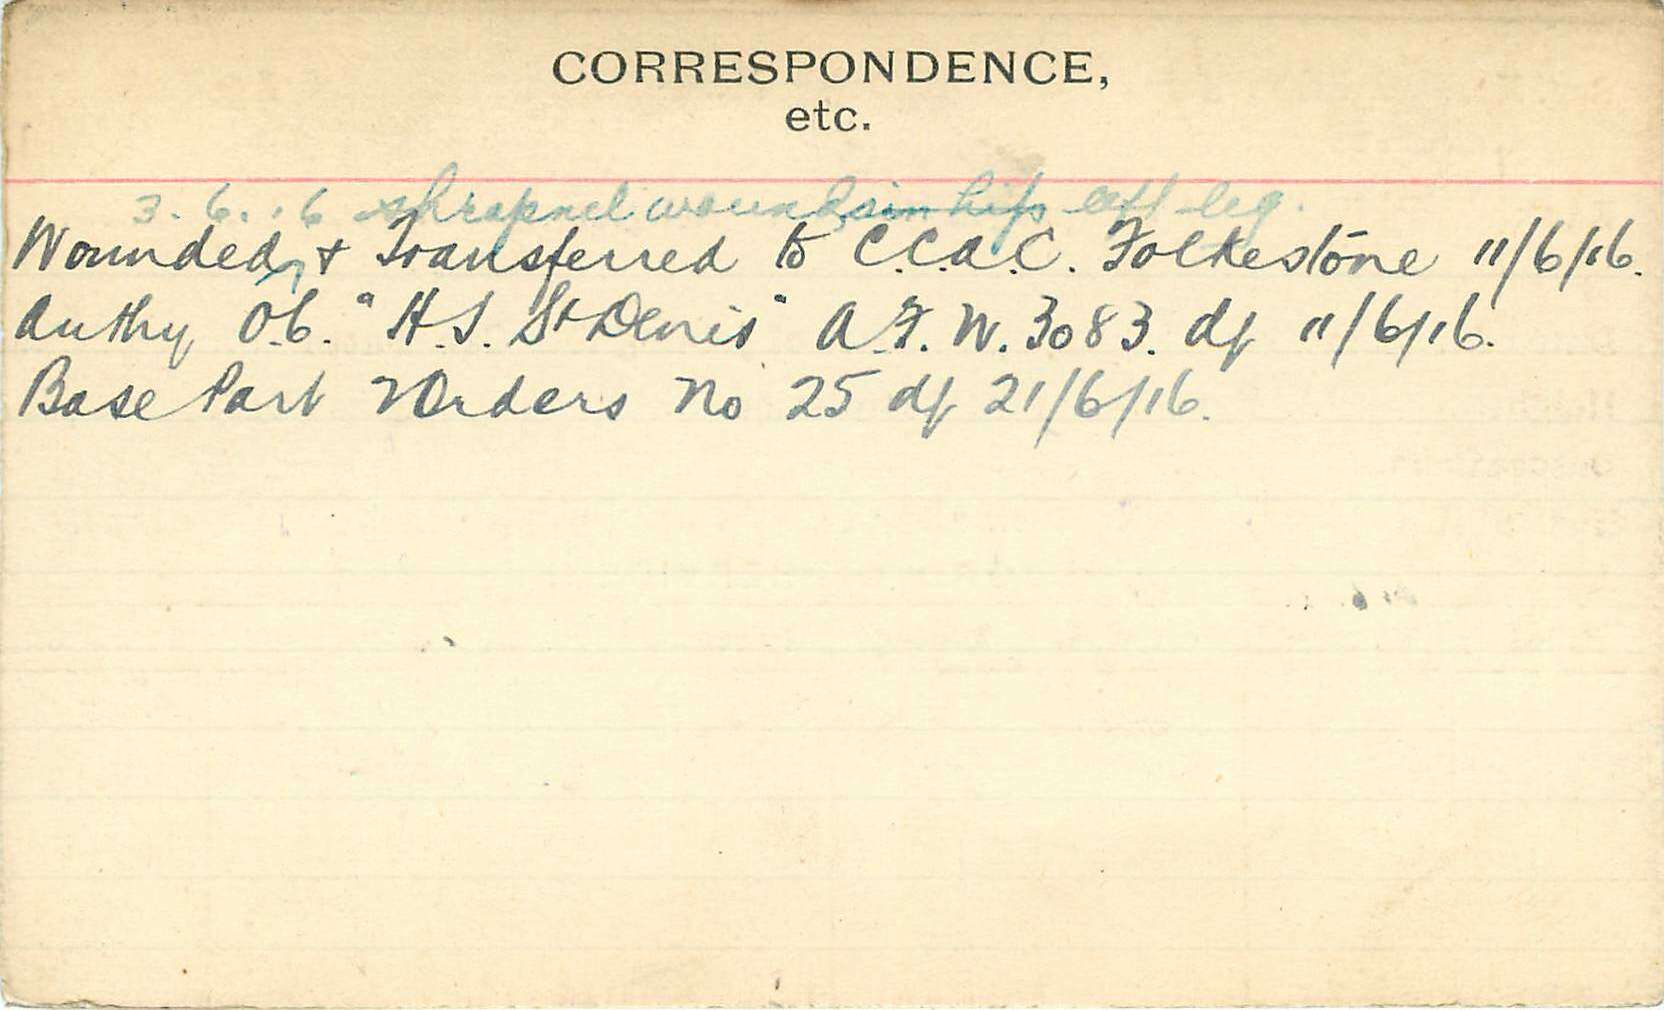 CORRESPONDENCE,
etc.
3.6.16 shrapnel wound in hips left leg.
Wounded & Transferred to C.C.A.C. Folkestone 11/6/16.
Authy O.C. "H.S. St Denis" A.F.W. 3083. df 11/6/16.
Base Part 2 Orders No 25 df 21/6/16.